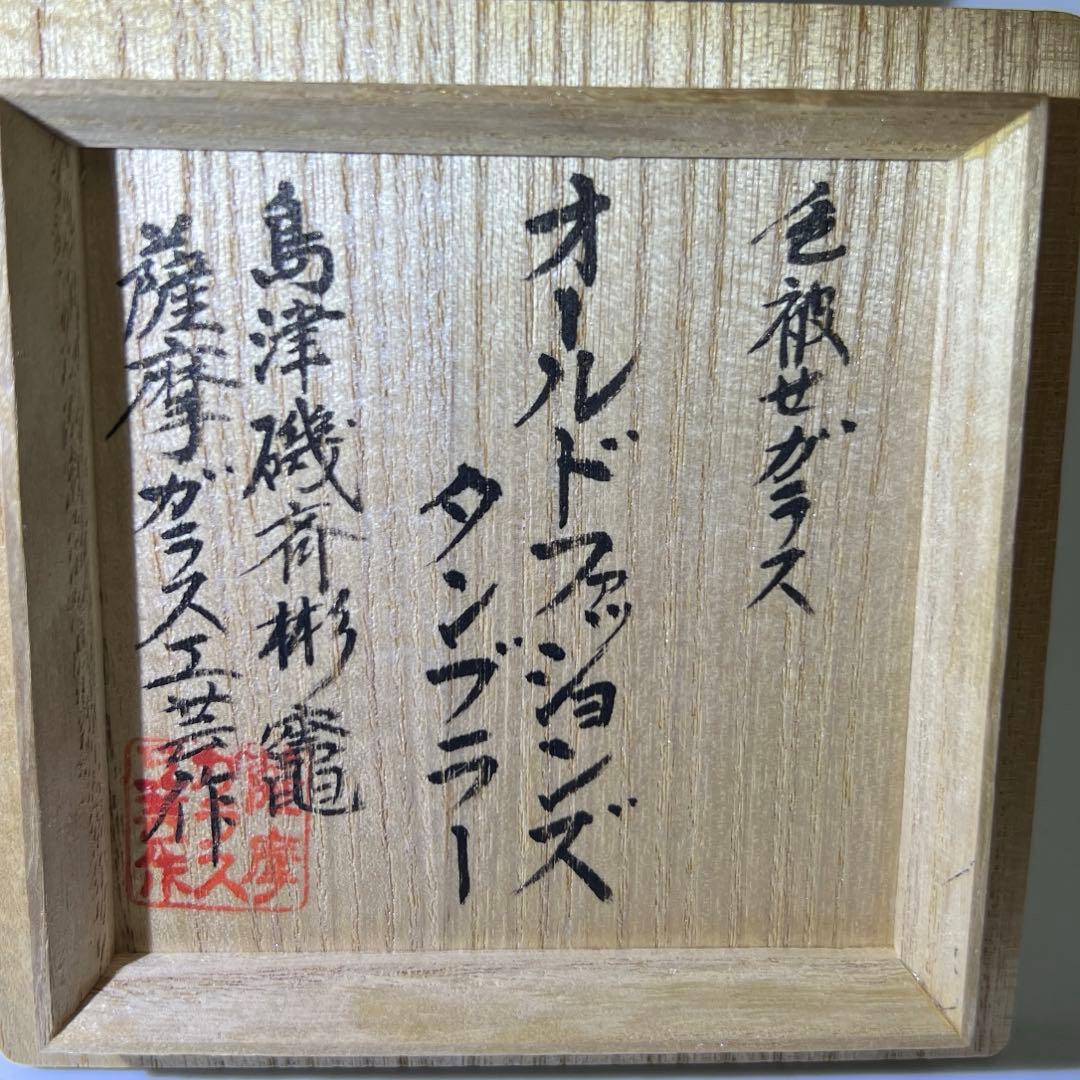 色被せガラス
オールドファッションズ
タンブラー
島津礒斉彬竈
薩摩ガラス工芸作
薩摩
ガラス
工芸作